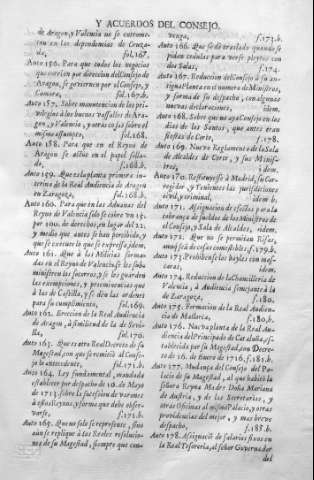 Y ACUERDOS DEL CONSEJO.
de Aragon, y Valencia no se entrome-
ten en las dependencias de Cruza-
da, fol. 167.
Auto 156. Para que todos los negocios
que corrien por direccion del Consejo de
Aragon, se goviernen por el Consejo, y
Camara, 167. b.
Auto 157. Sobre manutencion de los pri-
vilegios à los buenos vassallos de Ara-
gon, y Valencia, y otras cosas sobre el
mismo assumpto, fol. 168.
Auto 158. Para que en el Reyno de
Aragon se actùe en el papel sella-
do, f. 168. b.
Auto 159. Que es la planta primera in-
terina de la Real Audiencia de Aragon
en Zaragoza, fol. 168. b.
Auto 160. Para que en las Aduanas del
Reyno de Valencia solo se cobre un 15.
por 100. de derechos, en lugar del 22.
y medio que antes se han percibido, y
que se execute lo que se expressa, idem.
Auto 161. Que à los Milicias forma-
das en el Reyno de Valencia, se les subs
ministren los socorros, y se les guarden
las exempciones, y preeminencias que
à las de Castilla, y se dèn las ordenes
para su cumplimiento, fol. 169.
Auto 162. Ereccion de la Real Audiencia
de Aragon, à similitud de la de Sevi-
lla, fol. 170.
Auto 163. Que es otro Real Decreto de su
Magestad, con que se remitiò al Conse-
jo lo antecedente, fol. 171. b.
Auto 164. Ley fundamental, mandada
establecer por despacho de 10. de Mayo
de 1713. sobre la sucession de varones
à estos Reynos, y forma que debe obser-
varse, f. 171. b.
Auto 165. Que no solo se represente, sino
aùn se replique à los Reales resolucio-
nes de su Magestad, siempre que con-
venga, f. 173. b.
Auto 166. Que se dè traslado quando se
piden cedulas para verse pleytos con
dos Salas, f. 174.
Auto 167. Reduccion del Consejo à su an-
tigua Planta en el numero de Ministros,
y forma de su despacho, con algunas
nuevas declaraciones, idem.
Auto 168. Sobre que no aya Consejo en los
dias de los Santos, que antes eran
fiestas de Corte, f. 178.
Auto 169. Nuevo Reglamento de la Sala
de Alcaldes de Corte, y sus Minis-
tros, idem.
Auto 170. Restituyese à Madrid, su Cor-
regidor, y Tenientes las jurisdiciones
civil, y criminal, idem. b.
Auto 171. Assignacion de efectos para la
cobranza de sueldos de los Ministros de
el Consejo, y Sala de Alcaldes, idem.
Auto 172. Que no se permitan Rifas,
aunque sea de cosas comestibles, f. 179. b.
Auto 173. Prohibense los bayles con mas-
caras, idem.
Auto 174. Reduccion de la Chancilleria de
Valencia, à Audiencia semejante à la
de Zaragoza, f. 180.
Auto 175. Formacion de la Real Audien-
cia de Mallorca, f. 180. b.
Auto 176. Nueva planta de la Real Au-
diencia del Principado de Cataluña, es-
tablecida por su Magestad, con Decre-
to de 16. de Enero de 1716. f. 181. b.
Auto 177. Mudanza del Consejo del Pa-
lacio de su Magestad, al que habitò la
señora Reyna Madre Doña Mariana
de Austria, y de los Secretarios, y
otras Oficinas al mismo Palacio, y otras
providencias del mejor, y mas breve
despacho, f. 188. b.
Auto 178. Assignacion de salarios fixos en
la Real Tesoreria, al señor Governador
del